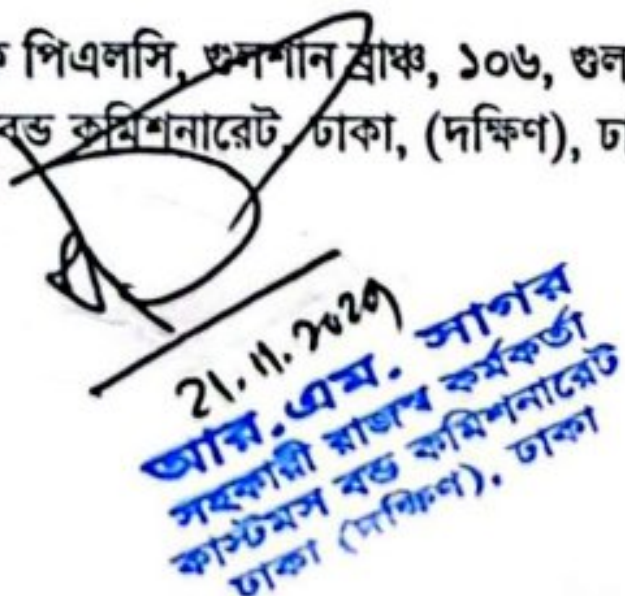 ক পিএলসি, গুলশান ব্রাঞ্চ, ১০৬, গুল
বন্ড কমিশনারেট, ঢাকা, (দক্ষিণ), ঢা
21.11.2029
আর.এম. সাগর
সহকারী রাজস্ব কর্মকর্তা
কাস্টমস বন্ড কমিশনারেট
ঢাকা (দক্ষিণ), ঢাকা